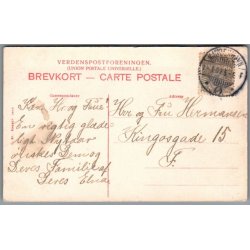 VERDENSPOSTFORENINGEN.
(UNION POSTALE UNIVERSELLE.)
BREVKORT — CARTE POSTALE
Kære H. og Frue!
En rigtig glæde-
ligt Nytaar
ønskes Dem og
Deres Familie af
Deres
Herr og Fru Hermansen
Kingosgade 15
F.